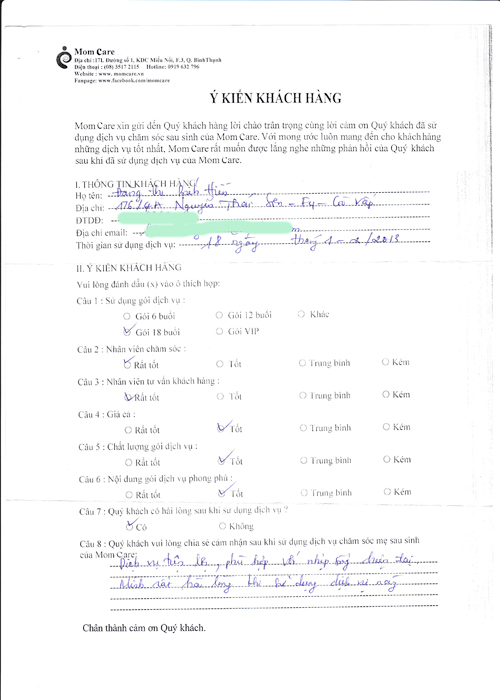 Mom Care
Địa chỉ :17L Đường số 1, KDC Miếu Nổi, F.3, Q. BìnhThạnh
Điện thoại : (08) 3517 2115 Hotline: 0919 632 796
Website : www. momcare.vn
Fanpage: www.facebook.com/momcare
Ý KIẾN KHÁCH HÀNG
Mom Care xin gửi đến Quý khách hàng lời chào trân trọng cùng lời cảm ơn Quý khách đã sử
dụng dịch vụ chăm sóc sau sinh của Mom Care. Với mong ước luôn mang đến cho khách hàng
những dịch vụ tốt nhất. Mom Care rất muốn được lắng nghe những phản hồi của Quý khách
sau khi đã sử dụng dịch vụ của Mom Care.
I. THÔNG TIN KHÁCH HÀNG
Họ tên: Đặng thị Hiền
Địa chỉ: Nguyễn Thái Sơn - F4 - Gò Vấp
ĐTDĐ:
Địa chỉ email:
Thời gian sử dụng dịch vụ: 18 ngày tháng 1 - 2/2013
II. Ý KIẾN KHÁCH HÀNG
Vui lòng đánh dấu (x) vào ô thích hợp:
Câu 1 : Sử dụng gói dịch vụ :
Gói 6 buổi Gói 12 buổi Khác
Gói 18 buổi Gói VIP
Câu 2 : Nhân viên chăm sóc :
Rất tốt Tốt Trung bình Kém
Câu 3 : Nhân viên tư vấn khách hàng :
Rất tốt Tốt Trung bình Kém
Câu 4 : Giá cả :
Rất tốt Tốt Trung bình Kém
Câu 5 : Chất lượng gói dịch vụ :
Rất tốt Tốt Trung bình Kém
Câu 6 : Nội dung gói dịch vụ phong phú :
Rất tốt Tốt Trung bình Kém
Câu 7 : Quý khách có hài lòng sau khi sử dụng dịch vụ ?
Có Không
Câu 8 : Quý khách vui lòng chia sẻ cảm nhận sau khi sử dụng dịch vụ chăm sóc mẹ sau sinh
của Mom Care:
Dịch vụ tiện lợi, phù hợp với nhịp sống hiện đại
Mình rất hài lòng khi sử dụng dịch vụ này
Chân thành cảm ơn Quý khách.